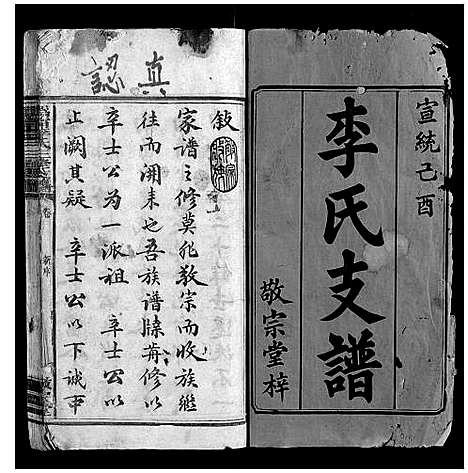 宣統己酉
李氏支譜
敬宗堂梓
認真
敍
家譜之修莫非敬宗而收族繼
往而開来也吾族譜牒苒修以
卒士公為一派祖 卒士公以
上闕其疑 卒士公以下誠中